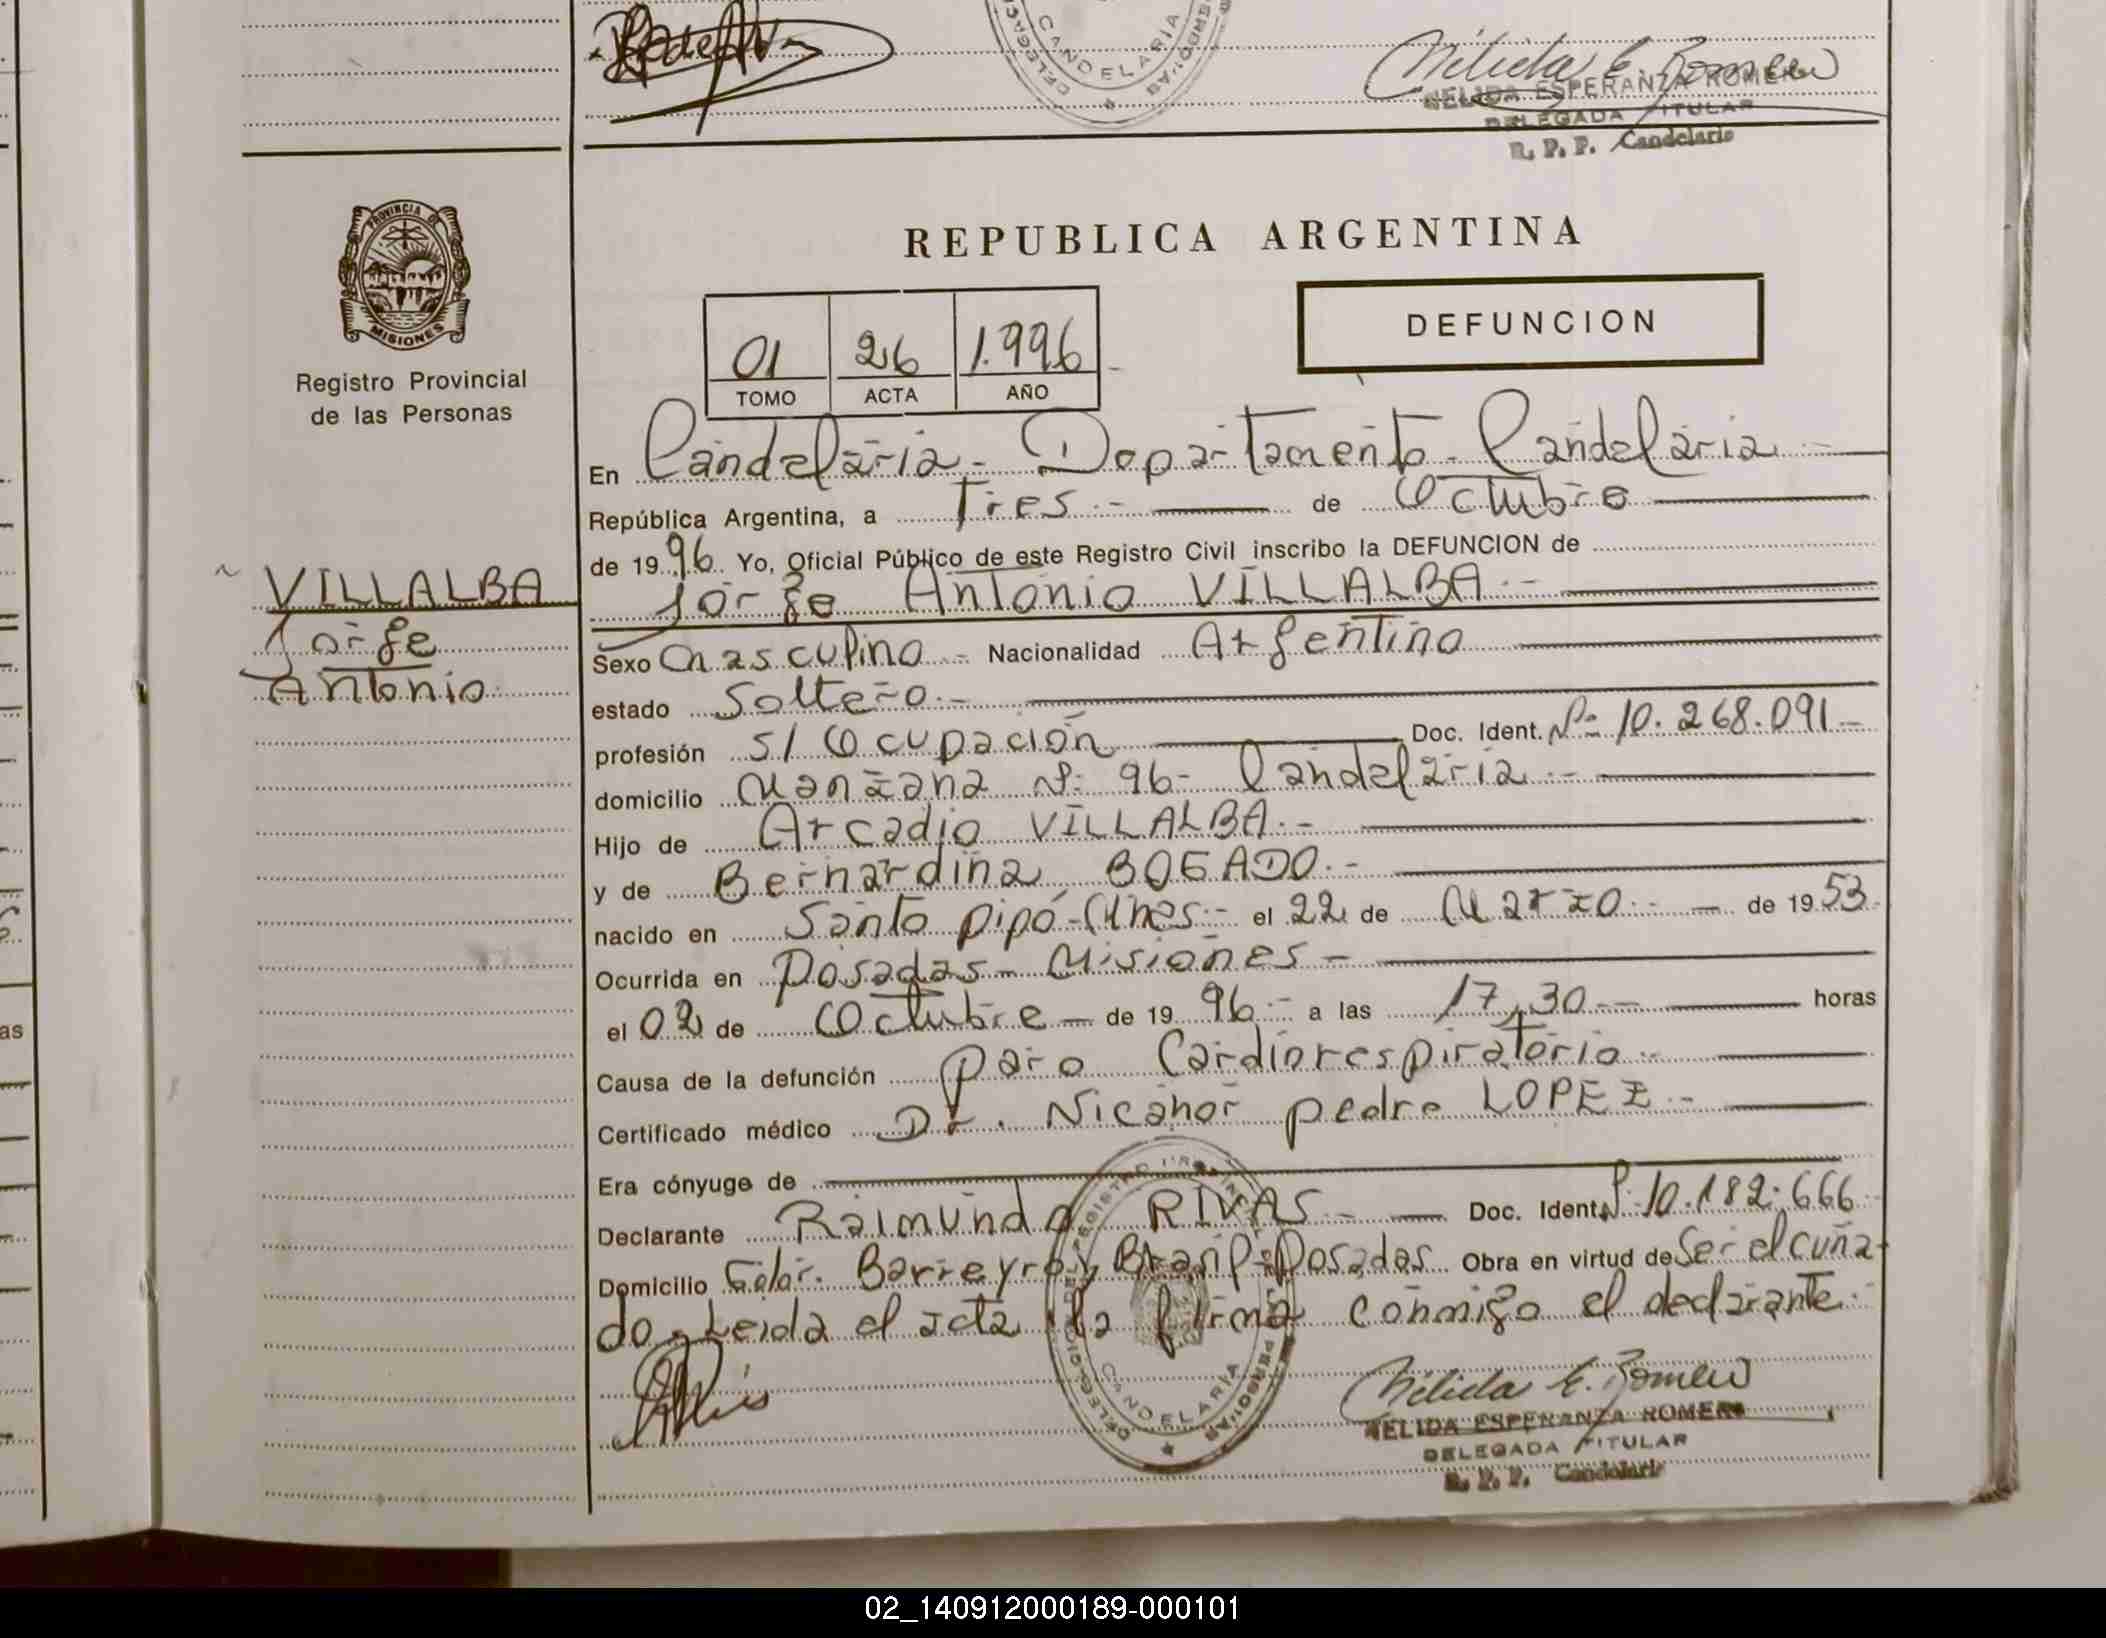 CANDELARIA
Nélida E. Romero
NELIDA ESPERANZA ROMERO
DELEGADA TITULAR
R. P. P. Candelaria
PROVINCIA DE
MISIONES
Registro Provincial
de las Personas
REPUBLICA ARGENTINA
DEFUNCION
01 26 1.996
TOMO ACTA AÑO
En Candelaria - Departamento - Candelaria -
República Argentina, a Tres.- de Octubre
de 1996 Yo, Oficial Público de este Registro Civil inscribo la DEFUNCION de
VILLALBA
Jorge
Antonio
Jorge Antonio VILLALBA.-
Sexo Masculino - Nacionalidad Argentino
estado Soltero.-
profesión s/ Ocupación Doc. Ident. Nº 10.268.091-
domicilio Manzana Nº 96- Candelaria.-
Hijo de Arcadio VILLALBA.-
y de Bernardina BOGADO.-
nacido en Santo pipó-Mnes.- el 22 de Marzo - de 1953.
Ocurrida en Posadas - Misiones -
el 02 de Octubre - de 1996.- a las 17,30.- horas
Causa de la defunción paro Cardiorespiratorio.-
Certificado médico Dr. Nicanor pedro LOPEZ.-
Era cónyuge de
Declarante Raimundo RIVAS.- Doc. Ident. Nº 10.182.666.
Domicilio Barreyro y Brasil-Posadas Obra en virtud de Ser el cuña-
do. Leida el acta la firma conmigo el declarante.
CANDELARIA
Nélida E. Romero
NELIDA ESPERANZA ROMERO
DELEGADA TITULAR
R. P. P. Candelaria
02_140912000189-000101